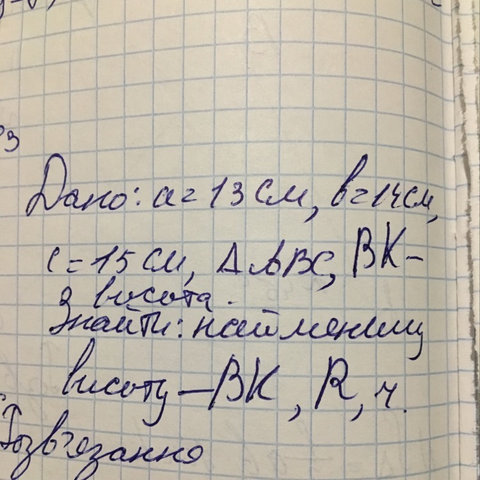 Дано: a = 13 см, b = 14 см,
c = 15 см, Δ ABC, BK –
висота.
Знайти: найменшу
висоту – BK, R, r.
Розв'язання